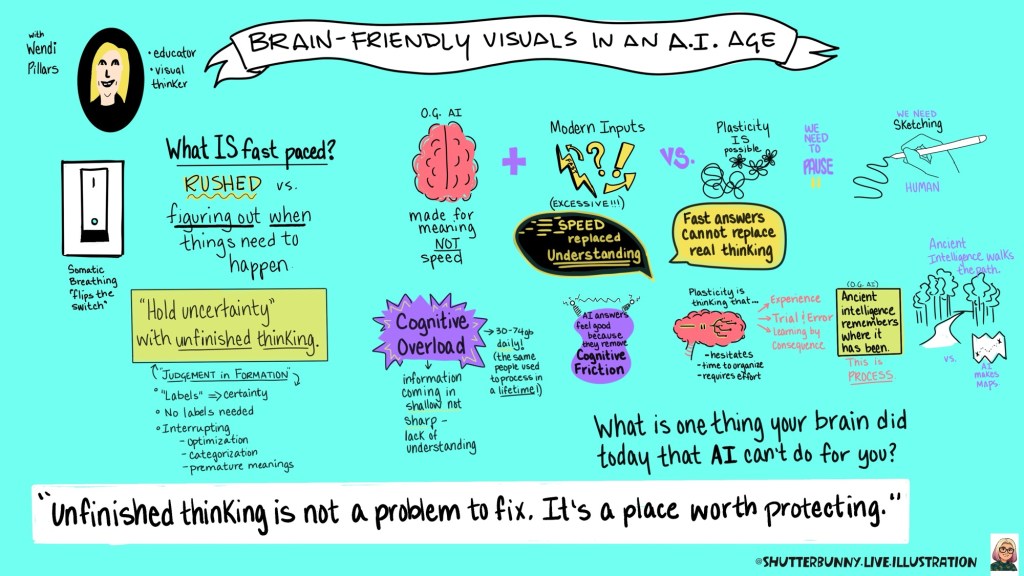 BRAIN-FRIENDLY VISUALS IN AN A.I. AGE
with
Wendi
Pillars
• educator
• visual
thinker
What IS fast paced?
RUSHED vs.
figuring out when
things need to
happen
Somatic
Breathing
"flips the
switch"
O.G. AI
made for
meaning
NOT
speed
+
Modern Inputs
(EXCESSIVE!!!)
SPEED
replaced
Understanding
VS.
Plasticity
IS
possible
Fast answers
cannot replace
real thinking
WE
NEED
TO
PAUSE
WE NEED
SKetching
HUMAN
"Hold uncertainty"
with unfinished thinking.
"JUDGEMENT in FORMATION"
• "Labels" => certainty
• No labels needed
• Interrupting
- optimization
- categorization
- premature meanings
Cognitive
Overload
30-74gb
daily!
(the same
people used
to process in
a lifetime!)
information
coming in
shallow not
sharp -
lack of
understanding
AI answers
feel good
because
they remove
Cognitive
Friction
Plasticity is
thinking that...
- hesitates
- time to organize
- requires effort
Experience
Trial & Error
Learning by
Consequence
(O.G. AI)
Ancient
intelligence
remembers
where it
has been.
This is
PROCESS
Ancient
Intelligence walks
the path.
vs.
AI
makes
maps
What is one thing your brain did
today that AI can't do for you?
"Unfinished thinking is not a problem to fix. It's a place worth protecting."
@SHUTTERBUNNY.LIVE.ILLUSTRATION